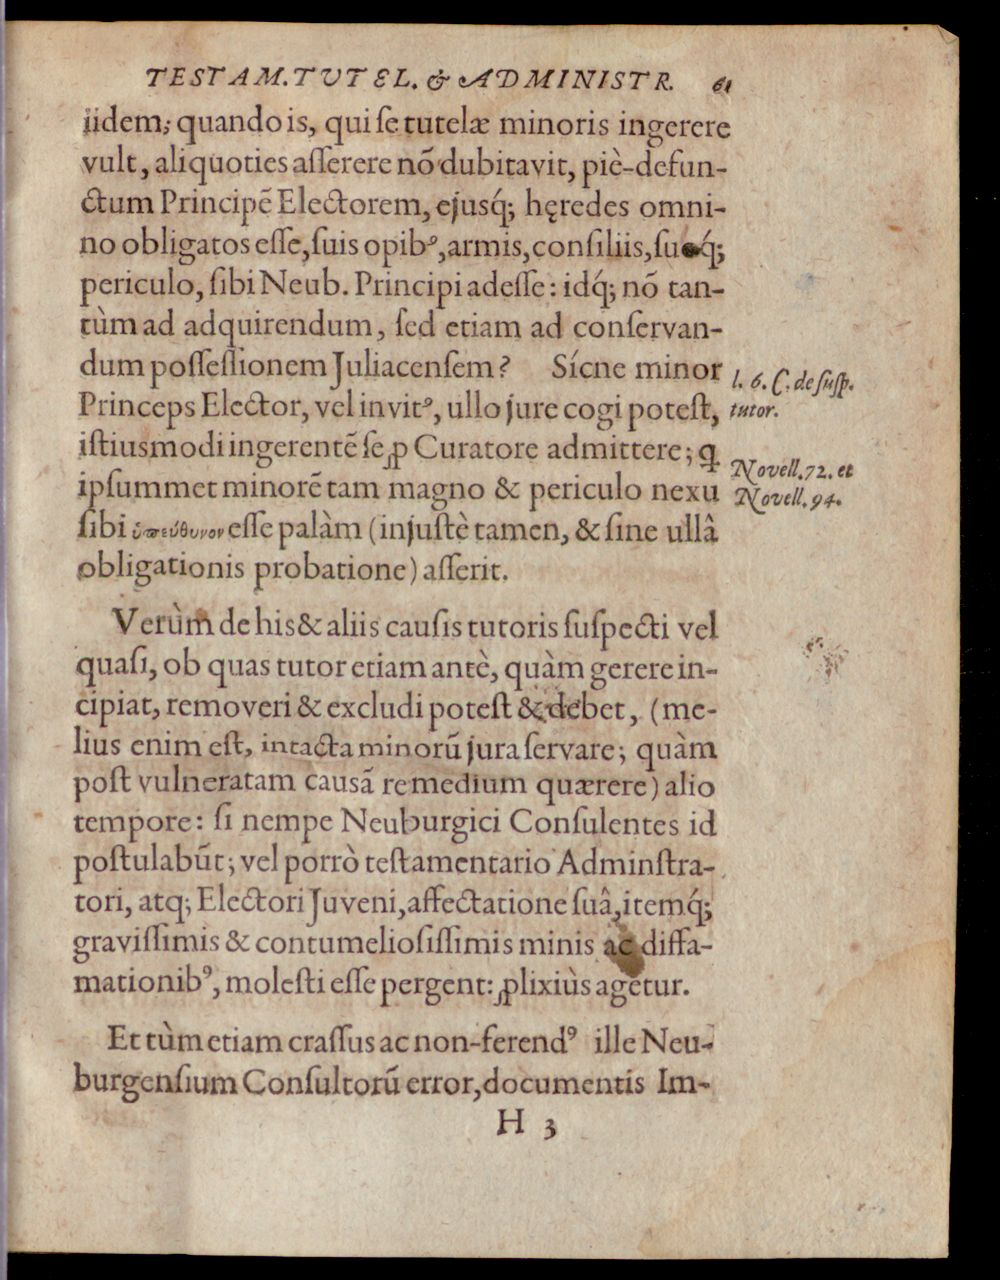 TESTAM. TUTEL. & ADMINISTR. 61
iidem; quando is, qui ſe tutelæ minoris ingerere
vult, aliquoties aſſerere nõ dubitavit, piè-defun-
ctum Principẽ Electorem, ejusq́; hęredes omni-
no obligatos eſſe, ſuis opibꝰ, armis, conſiliis, ſuoq́;
periculo, ſibi Neub. Principi adeſſe: idq́; nõ tan-
tùm ad adquirendum, ſed etiam ad conſervan-
dum poſſeſſionem Juliacenſem? Sícne minor
Princeps Elector, vel invitꝰ, ullo jure cogi poteſt,
iſtiusmodi ingerentẽ ſe ꝓ Curatore admittere; ꝗ
ipſummet minorẽ tam magno & periculo nexu
ſibi ὑπεύθυνον eſſe palàm (injuſtè tamen, & ſine ullâ
obligationis probatione) aſſerit.
l. 6. C. de ſuſp.
tutor.
Novell. 72. et
Novell. 94.
Verùm de his & aliis cauſis tutoris ſuſpecti vel
quaſi, ob quas tutor etiam antè, quàm gerere in-
cipiat, removeri & excludi poteſt & debet, (me-
lius enim eſt, intacta minorũ jura ſervare; quàm
poſt vulneratam causã remedium quærere) alio
tempore: ſi nempe Neuburgici Conſulentes id
poſtulabũt; vel porrò teſtamentario Adminſtra-
tori, atq; Electori Juveni, affectatione ſuâ, itemq́;
graviſſimis & contumelioſiſſimis minis ac diffa-
mationibꝰ, moleſti eſſe pergent: ꝓlixiùs agetur.
Et tùm etiam craſſus ac non-ferendꝰ ille Neu-
burgenſium Conſultorũ error, documentis Im-
H 3